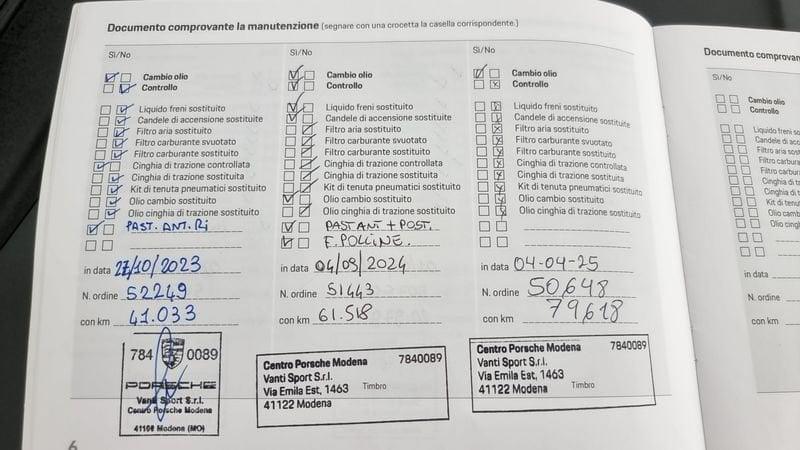 Documento comprovante la manutenzione (segnare con una crocetta la casella corrispondente.)
Sì/No
Cambio olio
Controllo
Liquido freni sostituito
Candele di accensione sostituite
Filtro aria sostituito
Filtro carburante svuotato
Filtro carburante sostituito
Cinghia di trazione controllata
Cinghia di trazione sostituita
Kit di tenuta pneumatici sostituito
Olio cambio sostituito
Olio cinghia di trazione sostituito
PAST. ANT. Ri
in data 27/10/2023
N. ordine 52249
con km 41.033
784 0089
PORSCHE
Vanti Sport S.r.l.
Centro Porsche Modena
41100 Modena (MO)
Sì/No
Cambio olio
Controllo
Liquido freni sostituito
Candele di accensione sostituite
Filtro aria sostituito
Filtro carburante svuotato
Filtro carburante sostituito
Cinghia di trazione controllata
Cinghia di trazione sostituita
Kit di tenuta pneumatici sostituito
Olio cambio sostituito
Olio cinghia di trazione sostituito
PAST ANT + POST.
F. POLLINE.
in data 04/09/2024
N. ordine 51443
con km 61.518
Centro Porsche Modena 7840089
Vanti Sport S.r.l.
Via Emilia Est, 1463 Timbro
41122 Modena
Sì/No
Cambio olio
Controllo
Liquido freni sostituito
Candele di accensione sostituite
Filtro aria sostituito
Filtro carburante svuotato
Filtro carburante sostituito
Cinghia di trazione controllata
Cinghia di trazione sostituita
Kit di tenuta pneumatici sostituito
Olio cambio sostituito
Olio cinghia di trazione sostituito
in data 04-04-25
N. ordine 50648
con km 79618
Centro Porsche Modena 7840089
Vanti Sport S.r.l.
Via Emilia Est, 1463 Timbro
41122 Modena
6
Documento comprovan
Sì/No
Cambio olio
Controllo
Liquido freni so
Candele di acce
Filtro aria sost
Filtro carbura
Filtro carbura
Cinghia di tra
Cinghia di tra
Kit di tenuta
Olio cambio
Olio cinghi
in data
N. ordine
con km